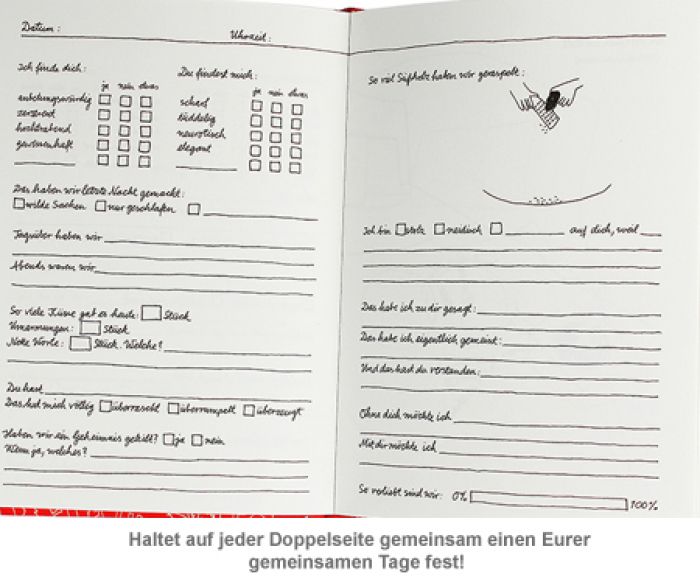 Datum:
Uhrzeit:
Ich finde dich:
ja nein etwas
anbetungswürdig
zerstreut
hochtrabend
gewissenhaft
Du findest mich:
ja nein etwas
scharf
tüddelig
neurotisch
elegant
Das haben wir letzte Nacht gemacht:
wilde Sachen nur geschlafen
Tagsüber haben wir
Abends waren wir
So viele Küsse gab es heute: Stück
Umarmungen: Stück
Nette Worte: Stück. Welche?
Du hast
Das hat mich völlig überrascht überrumpelt überzeugt
Haben wir ein Geheimnis geteilt? ja nein
Wenn ja, welches?
So viel Süßholz haben wir geraspelt:
Ich bin stolz neidisch auf dich, weil
Das habe ich zu dir gesagt:
Das habe ich eigentlich gemeint:
Und das hast du verstanden:
Ohne dich möchte ich
Mit dir möchte ich
So verliebt sind wir: 0% 100%
Haltet auf jeder Doppelseite gemeinsam einen Eurer
gemeinsamen Tage fest!